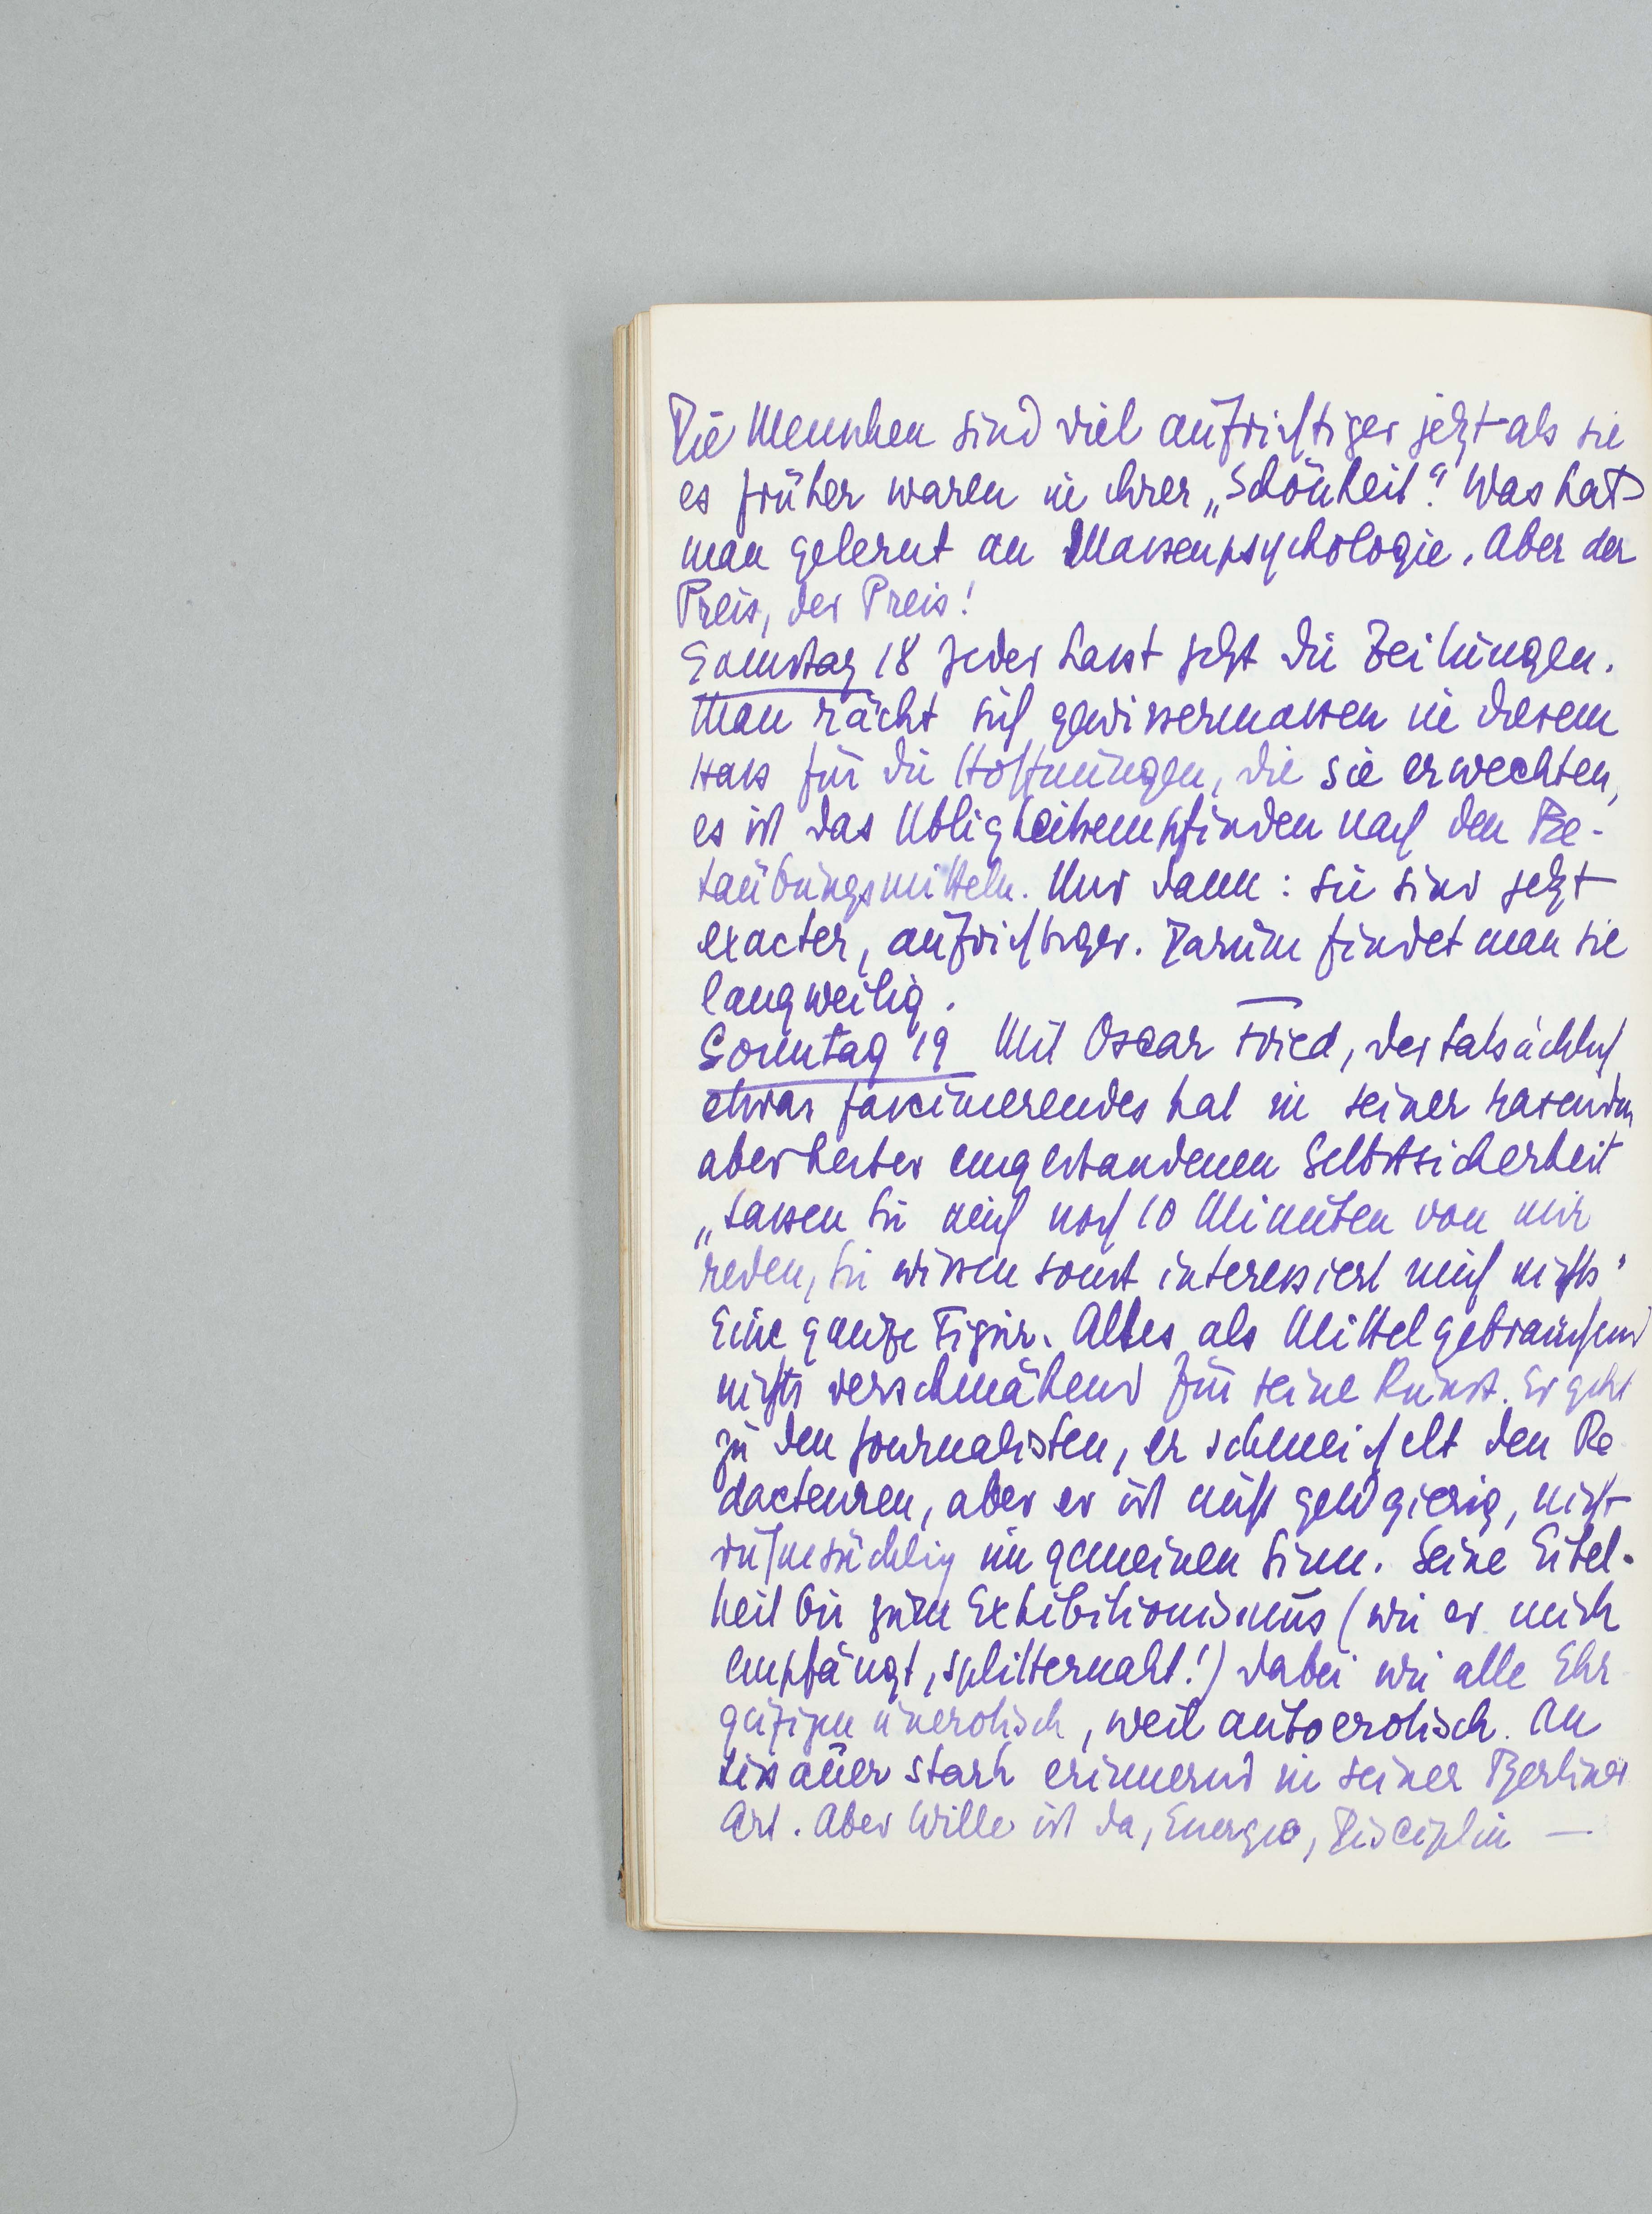 Die Menschen sind viel aufrichtiger jetzt als sie
es früher waren in ihrer „Schönheit". Was hat
man gelernt an Massenpsychologie. Aber der
Preis, der Preis!
Samstag 18 Jeder hasst jetzt die Zeitungen.
Man rächt sich gewissermassen in diesem
Hass für die Hoffnungen, die sie erweckten,
es ist das Übligkeitsempfinden nach den Be-
täubungsmitteln. Und dann: sie sind jetzt
exacter, aufrichtiger. Darum findet man sie
langweilig.
Sonntag 19 Mit Oscar Fried, der tatsächlich
etwas fascinierendes hat in seiner rasenden
aber heiter eingestandenen Selbstsicherheit
„Lassen Sie mich noch 10 Minuten von mir
reden, Sie wissen sonst interessiert mich nichts"
Eine ganze Figur. Alles als Mittel gebrauchend
nichts verschmähend für seine Kunst. Er geht
zu den Journalisten, er schmeichelt den Re
dacteuren, aber er ist nicht geldgierig, nicht
ruhmsüchtig im gemeinen Sinn. Seine Eitel-
keit bis zum Exhibitionismus (wie er mich
empfängt, splitternakt!) dabei wie alle Ehr
geizigen unerotisch, weil autoerotisch. An
Lissauer stark erinnernd in seiner Berliner
Art. Aber Wille ist da, Energie, Disciplin —